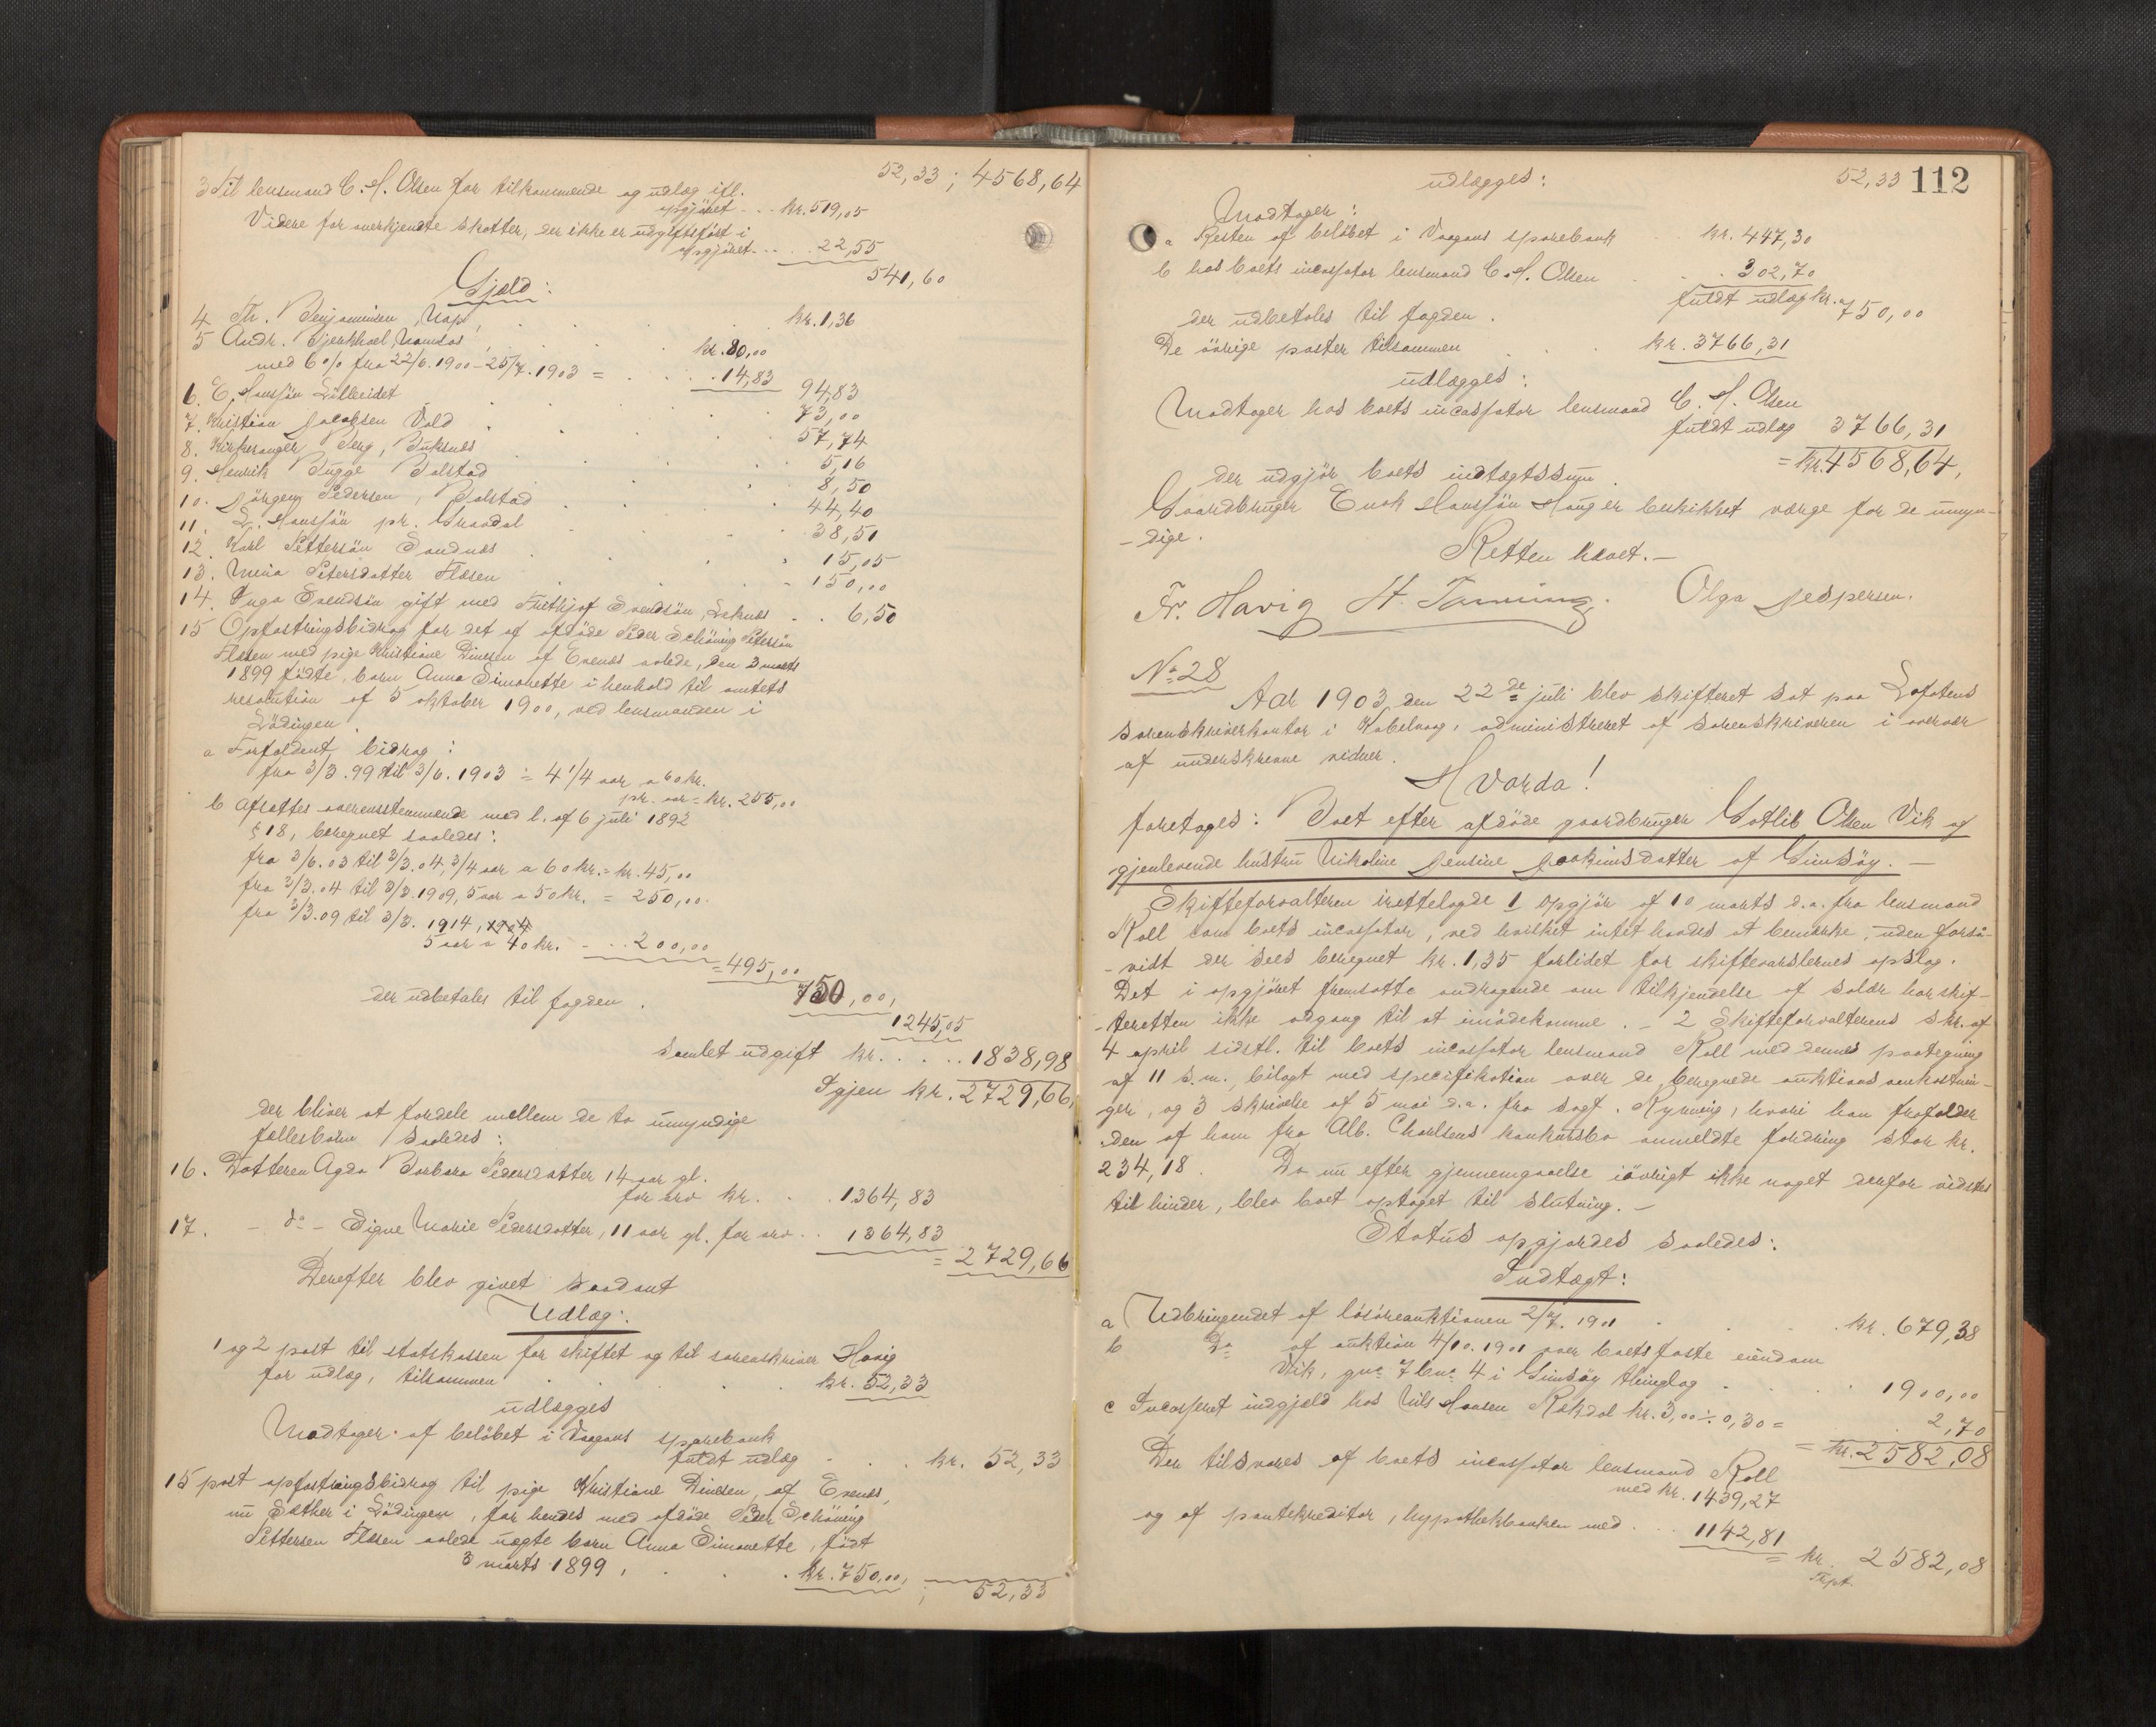 52,33; 4568,64
3 Til lensmand C. H. Olsen for tilkommende og udlæg ifl.
opgjøret . . . kr. 519,05
Videre for anerkjendte skatter, der ikke er udgiftsført i
opgjøret . . . 22,55
541,60
Gjæld:
4 Th. Benjaminsen, Nap, . . . kr. 1,36
5 Andr. Bjerkhoel, Namsos, . . . kr. 80,00
med 6 0/0 fra 22/6. 1900 – 25/7. 1903 = . . 14,83
94,83
6. E. Hansøn Lilleeidet . . . 73,00
7. Kristian Jacobsen Vold . . . 57,74
8. Kirkesanger Berg, Buksnes . . . 5,16
9. Henrik Bugge Bolstad . . . 8,50
10. Jörgen Pedersen, Bolstad . . . 44,40
11. L. Hansøn pr. Gravdal . . . 38,51
12. Karl Pettersön Sandnes . . . 15,05
13. Mina Petersdatter Flæsen . . . 150,00
14. Inga Svendsön gift med Frithjof Svendsön, Leknes . . 6,50
15 Opfostringsbidrag for det af afdöde Peder Schöning Petersön
Flæsen med pige Kristiane Dinesen af Evenes avlede, den 3 marts
1899 födte, barn Anna Simonette i henhold til amtets
resolution af 5 oktober 1900, ved lensmanden i
Lödingen.
a Forfaldent bidrag:
fra 3/3. 99 til 3/6. 1903 = 4 1/4 aar a 60 kr.
pr. aar = kr. 255,00
b afsattes overensstemmende med l. af 6 juli 1892
§ 18, beregnet saaledes:
fra 3/6. 03 til 3/3. 04, 3/4 aar a 60 kr. = kr. 45,00
fra 3/3. 04 til 3/3. 1909, 5 aar a 50 kr. = 250,00
fra 3/3. 09 til 3/3. 1914, 1904
5 aar a 40 kr. - . . 200,00
= 495,00
der udbetales til fogden . 750,00,
1245,05
Samlet udgift kr. . . . . 1838,98
Igjen kr. 2729,66,
der bliver at fordele mellem de to umyndige
fællesbørn saaledes:
16. Datteren Agda Barbara Pedersdatter 14 aar gl.
for arv kr. . . 1364,83
17. – do – Signe Marie Pedersdatter, 11 aar gl. for arv . . 1364,83
= 2729,66
Derefter blev givet saadant
Udlæg:
1 og 2 post til statskassen for skiftet og til sorenskriver Havig
for udlæg, tilsammen . . . kr. 52,33
udlægges
Modtager af belöbet i Vaagans sparebank
fuldt udlæg . . . kr. 52,33
15 post opfostringsbidrag til pige Kristiane Dinesen, af Evenes,
nu Sæther i Lödingen, for hendes med afdöde Peder Schöning
Pettersen Flæsen avlede uægte barn Anna Simonette, födt
3 marts 1899, . . . kr. 750,00,
; 52,33
52,33 112
udlægges:
Modtager:
a Resten af belöbet i Vaagans sparebank kr. 447,30
b hos boets incassator lensmand C. H. Olsen . . 302,70
fuldt udlæg kr. 750,00
der udbetales til fogden.
De övrige poster tilsammen . . . kr. 3766,31
udlægges:
Modtager hos boets incassator lensmand C. H. Olsen
fuldt udlæg 3766,31
= kr. 4568,64,
der udgjör boets indtægtssum.
Gaardbruger Enok Hansøn Haug er beskikket værge for de umyn-
-dige.
Retten hævet. –
Fr. Havig H. Tanning. Olga Jespersen.
No 28
Aar 1903 den 22de juli blev skifteret sat paa Lofotens
sorenskriverkontor i Kabelvaag, administreret af sorenskriveren i overvær
af underskrevne vidner.
Hvorda!
foretages: Boet efter afdöde gaardbruger Gotlib Olsen Vik og
gjenlevende hustru Nikoline Jensine Joakimsdatter af Gimsöy. –
Skifteforvalteren irettelagde 1 opgjör af 10 marts d.a. fra lensmand
Roll som boets incassator, ved hvilket intet havdes at bemærke, uden forsaa-
-vidt der sees beregnet kr. 1,35 forlidet for skiftevarslernes opslag.
Det i opgjöret fremsatte andragende om tilkjendelse af salær har skif-
-teretten ikke adgang til at imödekomme. – 2 Skifteforvalterens skr. af
4 april sidstl. til boets incassator lensmand Roll med dennes paategning
af 11 s.m., bilagt med specifikation over de beregnede auktionsomkostnin-
ger, og 3 skrivelse af 5 mai d.a. fra sagf. Rynning, hvori han frafalder
den af ham fra Alb. Charlsens konkursbo anmeldte fordring stor kr.
234,18. Da nu efter gjennemgaaelse iövrigt ikke noget derfor vidstes
til hinder, blev boet optaget til slutning. –
Status opgjordes saaledes:
Indtægt:
a Udbringendet af lösöreauktionen 2/7. 1901 . . . kr. 679,38
b Do af auktion 4/10. 1901 over boets faste eiendom
Vik, gno 7 bno 4 i Gimsöy thinglag . . . 1900,00
c Incasseret indgjæld hos Nils Hansen Rekdal kr. 3,00 ÷ 0,30 = 2,70
= kr. 2582,08
Der tilsvares af boets incassator lensmand Roll
med kr. 1439,27
og af pantekreditor, hypothekbanken med . . . 1142,81
= kr. 2582,08
Trpt.